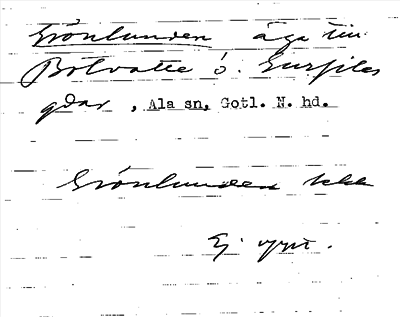 Grönlunden äga till
Bölvatte o. Gurfiles
gdar, Ala sn, Gotl. N. hd.
Grönlunden
Ej uppt.